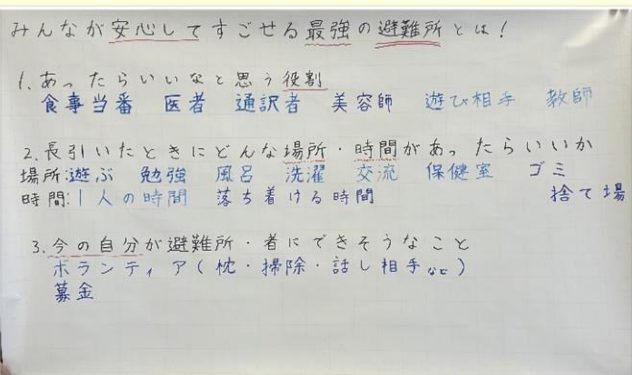 みんなが安心してすごせる最強の避難所とは!
1.あったらいいなと思う役割
食事当番 医者 通訳者 美容師 遊び相手 教師
2.長引いたときにどんな場所・時間があったらいいか
場所:遊ぶ 勉強 風呂 洗濯 交流 保健室 ゴミ捨て場
時間:1人の時間 落ち着ける時間
3.今の自分が避難所・者にできそうなこと
ボランティア(枕・掃除・話し相手など)
募金